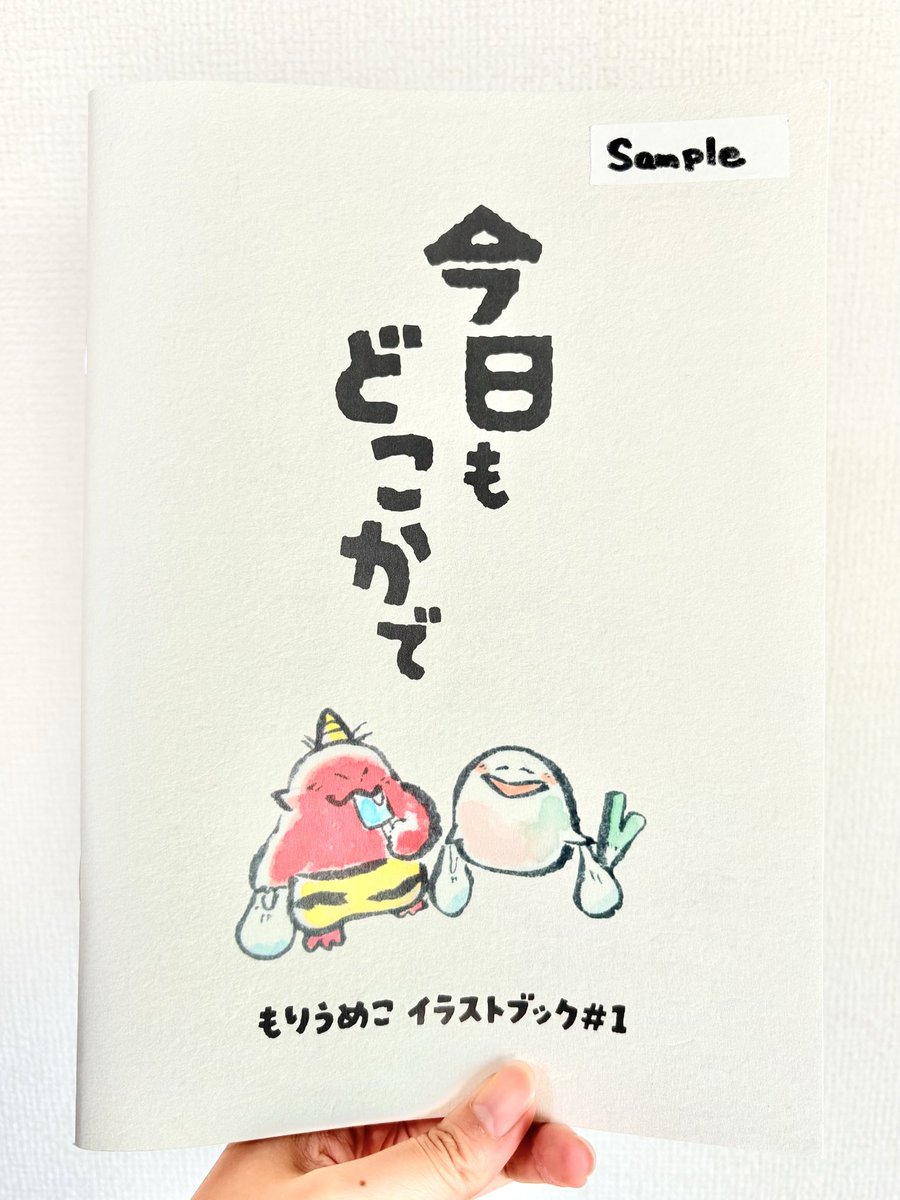 Sample
今日も
どこかで
もりうめこ イラストブック#1